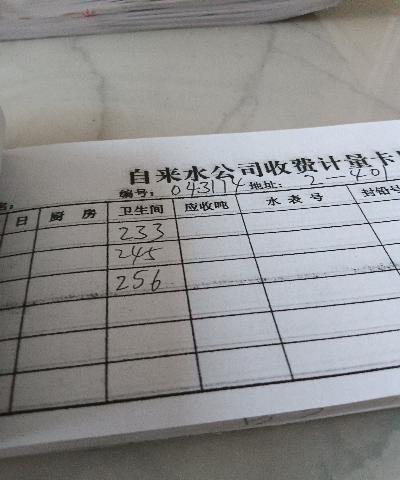 自来水公司收费计量卡
编号: 043174 地址: 2-401
日 厨房 卫生间 应收吨 水表号 封铅号
233
245
256